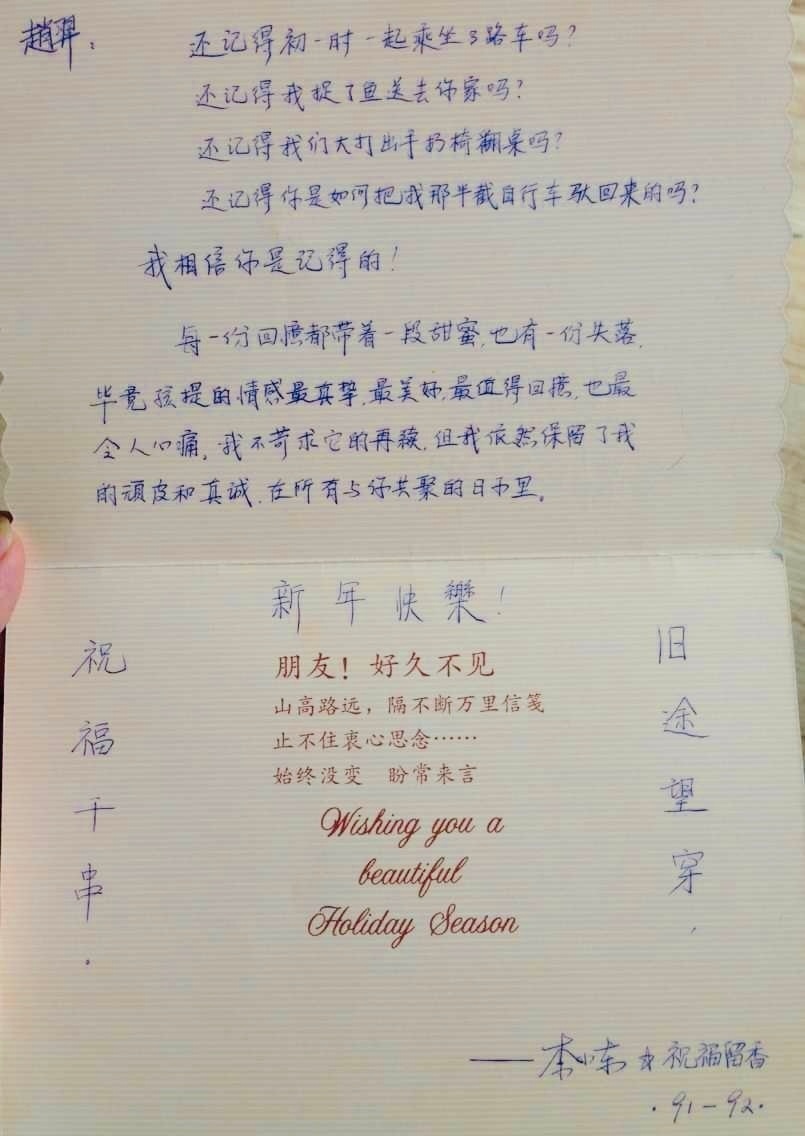 趙羿：
还记得初一时一起乘坐3路车吗？
还记得我捉了鱼送去你家吗？
还记得我们大打出手扔椅翻桌吗？
还记得你是如何把我那半截自行车驮回来的吗？
我相信你是记得的！
每一份回憶都带着一段甜蜜，也有一份失落，
毕竟孩提的情感最真挚，最美好，最值得回憶，也最
令人心痛，我不苛求它的再续，但我依然保留了我
的顽皮和真诚，在所有与你共聚的日子里。
新年快樂！
旧途望穿，
祝福千串。
朋友！好久不见
山高路远，隔不断万里信笺
止不住衷心思念……
始终没变 盼常来言
Wishing you a
beautiful
Holiday Season
——李小东 祝福留香
·91-92·